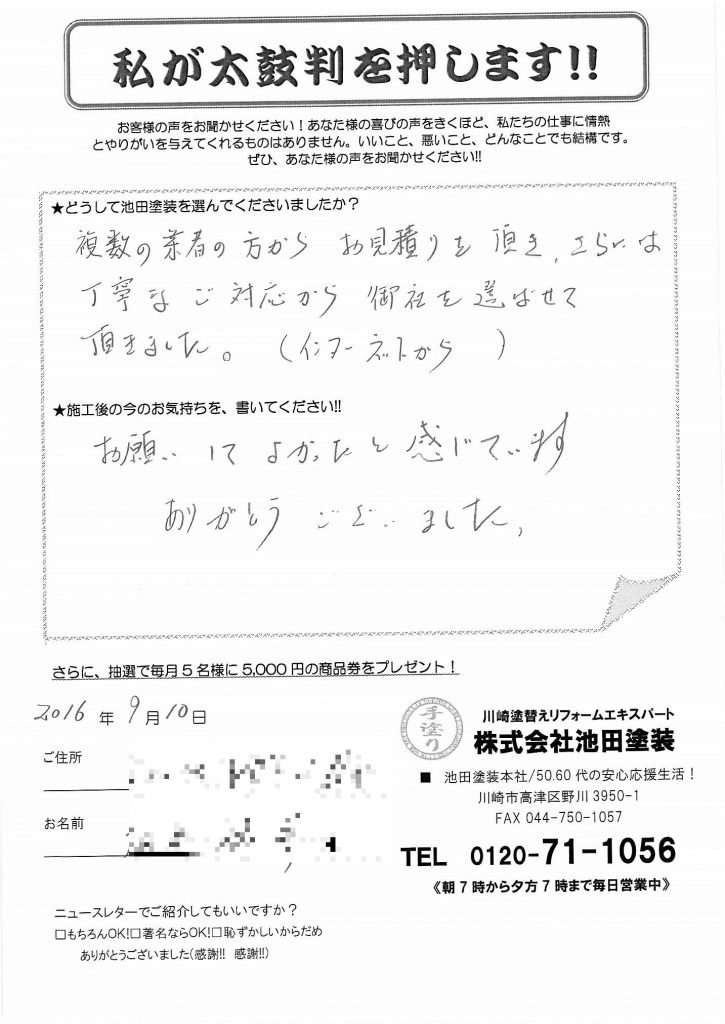 私が太鼓判を押します!!
お客様の声をお聞かせください！あなた様の喜びの声をきくほど、私たちの仕事に情熱
とやりがいを与えてくれるものはありません。いいこと、悪いこと、どんなことでも結構です。
ぜひ、あなた様の声をお聞かせください!!
★どうして池田塗装を選んでくださいましたか？
複数の業者の方から お見積りを頂き、さらには
丁寧なご対応から 御社を選ばせて
頂きました。（インターネットから ）
★施工後の今のお気持ちを、書いてください!!
お願いしてよかったと感じています
ありがとうございました。
さらに、抽選で毎月5名様に5,000円の商品券をプレゼント！
2016 年 9 月 10 日
手塗り
川崎塗替えリフォームエキスパート
株式会社池田塗装
ご住所
■ 池田塗装本社/50.60代の安心応援生活！
川崎市高津区野川3950-1
FAX 044-750-1057
お名前
TEL 0120-71-1056
《朝7時から夕方7時まで毎日営業中》
ニュースレターでご紹介してもいいですか？
□もちろんOK!□著名ならOK!□恥ずかしいからだめ
ありがとうございました(感謝!! 感謝!!)